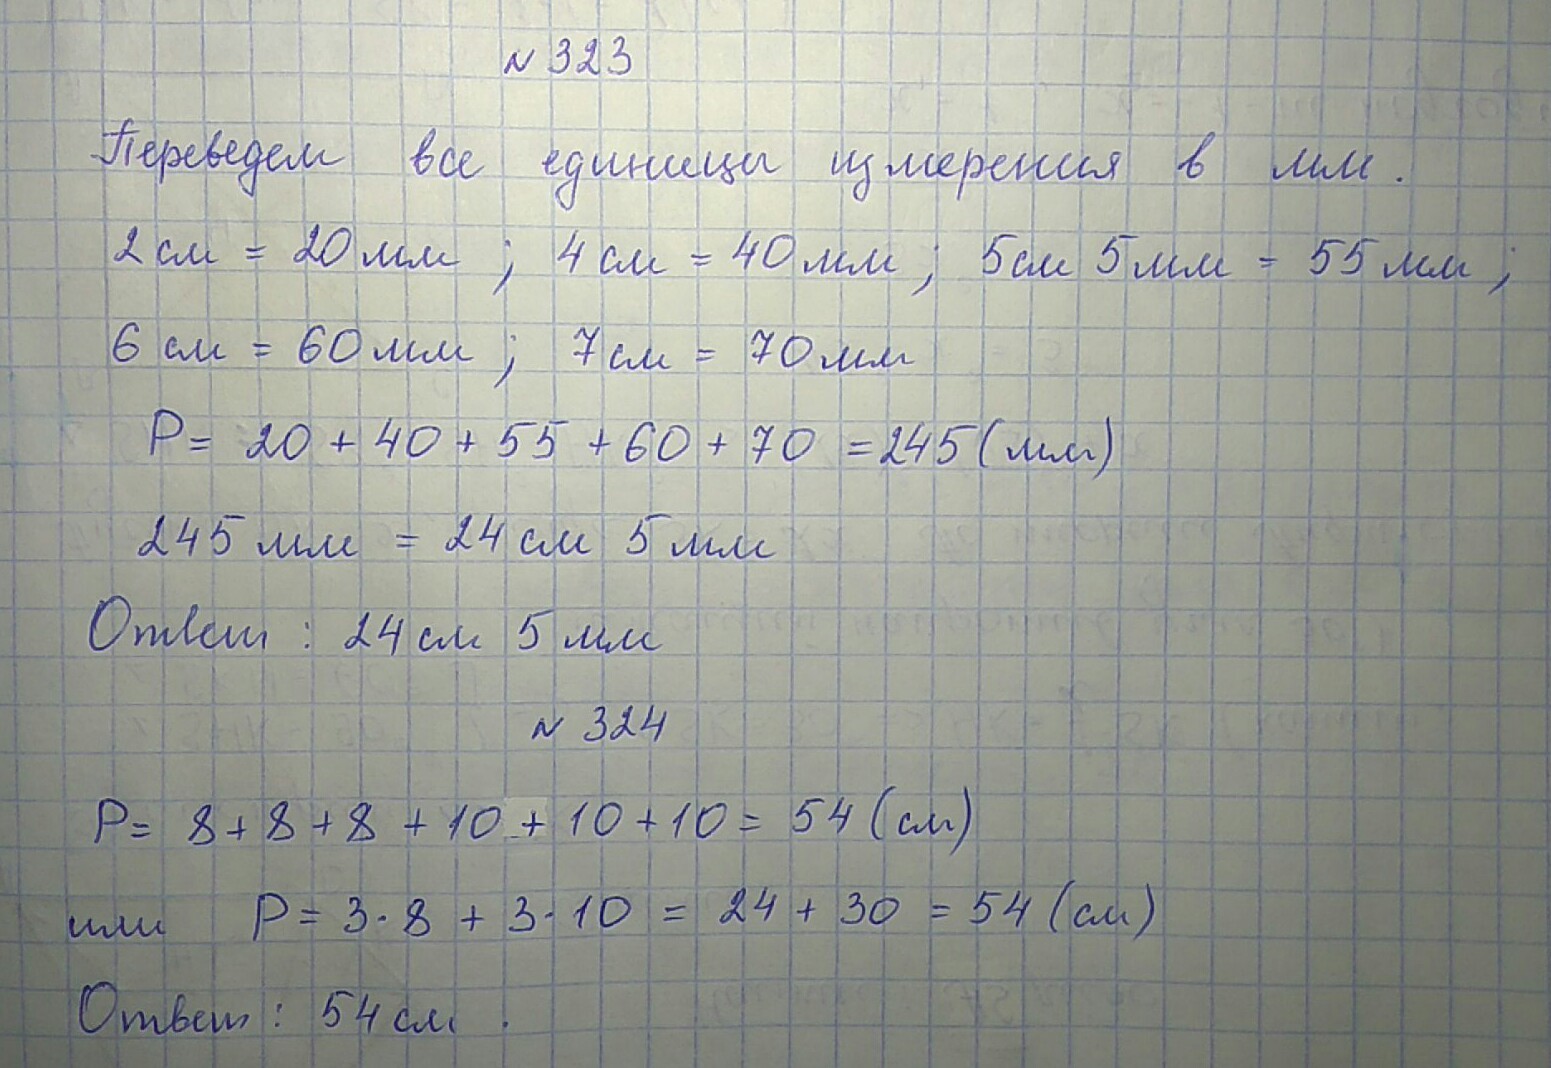 № 323
Переведем все единицы измерения в мм.
2 см = 20 мм ; 4 см = 40 мм ; 5 см 5 мм = 55 мм ;
6 см = 60 мм ; 7 см = 70 мм
P = 20 + 40 + 55 + 60 + 70 = 245 (мм)
245 мм = 24 см 5 мм
Ответ : 24 см 5 мм
№ 324
P = 8 + 8 + 8 + 10 + 10 + 10 = 54 (см)
или P = 3 · 8 + 3 · 10 = 24 + 30 = 54 (см)
Ответ : 54 см .